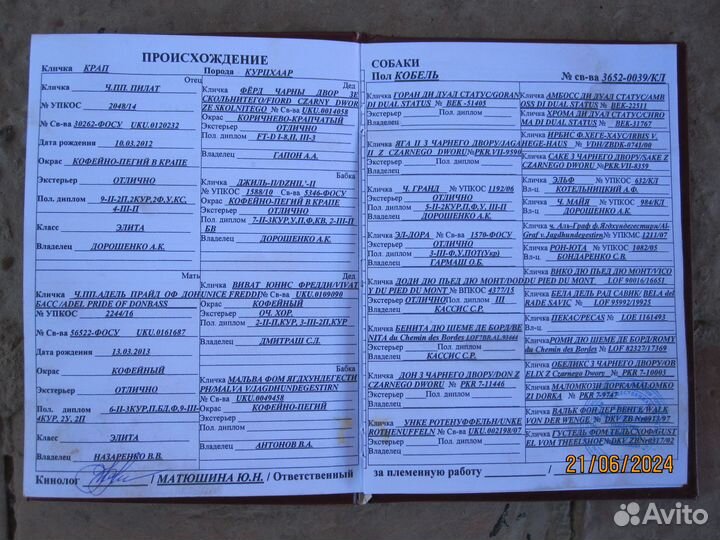 ПРОИСХОЖДЕНИЕ
Кличка КРАП Порода КУРЦХААР
Отец
Ч.ПП. ПИЛАТ
№ УПКОС 2048/14
№ Св-ва 30262-ФОСУ UKU.0120232
Дата рождения 10.03.2012
Окрас КОФЕЙНО-ПЕГИЙ В КРАПЕ
Экстерьер ОТЛИЧНО
Пол. диплом 9-II-2П,2КУР,2Ф,У,КС,
4-III-П
Класс ЭЛИТА
Владелец ДОРОШЕНКО А.К.
Дед
Кличка ФЁРД ЧАРНЫ ДВОР ЗЕ
СКОЛЬНИТЕГО/FIORD CZARNY DWOR
ZE SKOLNITEGO № Св-ва UKU.0014058
Окрас КОРИЧНЕВО-КРАПЧАТЫЙ
Экстерьер ОТЛИЧНО
Пол. диплом FT-D I-8,II, III-3
Владелец ГАПОН А.А.
Бабка
Кличка ДЖИЛЬ-II/DZHIL'-II
№ УПКОС 1588/10 Св-ва 5346-ФОСУ
Окрас КОФЕЙНО-ПЕГИЙ В КРАПЕ
Экстерьер ОТЛИЧНО
Пол. диплом 7-II-3КУР,У,П,Ф,КВ, 2-III-П
БВ
Владелец ДОРОШЕНКО А.К.
Мать
Кличка Ч.ПП.АДЕЛЬ ПРАЙД ОФ ДОН
БАСС /ADEL PRIDE OF DONBASS
№ УПКОС 2244/16
№ Св-ва 56522-ФОСУ UKU.0161687
Дата рождения 13.03.2013
Окрас КОФЕЙНЫЙ
Экстерьер ОТЛИЧНО
Пол. диплом 6-II-3КУР,П,БД,Ф,9-III-
4КУР, 2У, 2П
Класс ЭЛИТА
Владелец НАЗАРЕНКО В.В.
Дед
Кличка ВИВАТ ЮНИС ФРЕДДИ/VIVAT
UNICE FREDDI № Св-ва UKU.0109090
Окрас КОФЕЙНЫЙ
Экстерьер ОЧ. ХОР.
Пол. диплом 2-II-П,КУР, 3-III-2П,КУР
Владелец ДМИТРАШ С.Л.
Бабка
Кличка МАЛЬВА ФОМ ЯГДХУНДЕГЕСТИ
№ Св-ва UKU.0049458
Окрас КОФЕЙНО-ПЕГИЙ
Экстерьер
Пол. диплом
Владелец АНТОНОВ В.А.
Кинолог / МАТЮШИНА Ю.Н. / Ответственный
СОБАКИ
Пол КОБЕЛЬ № св-ва 3652-0039/КЛ
Кличка ГОРАН ДИ ДУАЛ СТАТУС/GORAN
DI DUAL STATUS № ВЕК -51405
Экстерьер Пол. диплом
Владелец
Кличка ЯГА II З ЧАРНЕГО ДВОРУ/JAGA
II Z CZARNEGO DWORU №PKR.VII-9590
Экстерьер Пол. диплом
Владелец
Кличка Ч. ГРАНД № УПКОС 1192/06
Экстерьер ОТЛИЧНО
Пол. диплом 5-II-2КУР,П,Ф,У, III-П
Владелец ДОРОШЕНКО А.К.
Кличка ЭЛ-ДОРА № Св-ва 1570-ФОСУ
Экстерьер ОТЛИЧНО
Пол. диплом 3-III-Ф,У,ПОТ(Укр)
Владелец ГАРМАШ О.Б.
Кличка ДОДИ ДЮ ПЬЕД ДЮ МОНТ/DODDY
DU PIED DU MONT № ВПКОС 4377/15
Экстерьер ОТЛИЧНО Пол. диплом III
Владелец КАССИС С.Р.
Кличка БЕНИТА ДЮ ШЕМЕ ДЕ БОРД/BE
NITA du Chemin des Bordes
Экстерьер Пол. диплом
Владелец КАССИС С.Р.
Кличка ДОН З ЧАРНЕГО ДВОРУ/DON Z
CZARNEGO DWORU № PKR 7-11446
Экстерьер Пол. диплом
Владелец
Кличка УНКЕ РОТЕНУФФЕЛЬН/UNKE
ROTHENUFFELN № Св-ва UKU.002198/07
Экстерьер Пол. диплом
Владелец
Кличка АМБОСС ДИ ДУАЛ СТАТУС/AMB
OSS DI DUAL STATUS № ВЕК-22511
Кличка ХРОМА ДИ ДУАЛ СТАТУС/CHRO
MA DI DUAL STATUS № ВЕК-31767
Кличка ИРБИС Ф.ХЕГЕ-ХАУС/IRBIS V.
HEGE-HAUS № VDH/ZBDK-0741/00
Кличка САКЕ З ЧАРНЕГО ДВОРУ/SAKE Z
CZARNEGO DWORU №PKR.VII-8359
Кличка ЭЛЬФ № УПКОС 632/КЛ
Вл-ц КОТЕЛЬНИЦКИЙ А.Ф.
Кличка Ч. МАЙЯ № УПКОС 984/КЛ
Вл-ц. ДОРОШЕНКО А.К.
Кличка ч. Аль-Граф ф.Ягдхундегестирн/Al-
Graf v.Jagdhundegestirn №УКМС 1211/07
Кличка РОН-ЮТА № УПКОС 1082/05
Вл-ц. БОНДАРЕНКО С.В.
Кличка ВИКО ДЮ ПЬЕД ДЮ МОНТ/VICO
DU PIED DU MONT № LOF 90016/16651
Кличка БЕЛА ДЕЛЬ РАД САВИК/ BELA del
RADE SAVIC № LOF 95992/19926
Кличка ПЕКАС/PECAS № LOE 1161493
Вл-ц.
Кличка РОМИ ДЮ ШЕМЕ ДЕ БОРД/ROMY
du Chemin des Bordes № LOF 82327/17369
Кличка ОБЕЛИКС З ЧАРНЕГО ДВОРУ/OB
ELIX Z Czarnego Dworu № PKR 7-10003
Кличка МАЛОМКОЗИ ДОРКА/MALOMKO
ZI DORKA № PKR 7-9747
Кличка ВАЛЬК ФОН ДЕР ВЕНГЕ/WALK
VON DER WENGE № DKV ZB №0913/97
Кличка ГУСТЕЛЬ ФОМ ТЕЕЛЬСХОФ/GUST
EL VOM THEELSHOF№ DKV ZB№0317/02
за племенную работу / /
21/06/2024
Avito